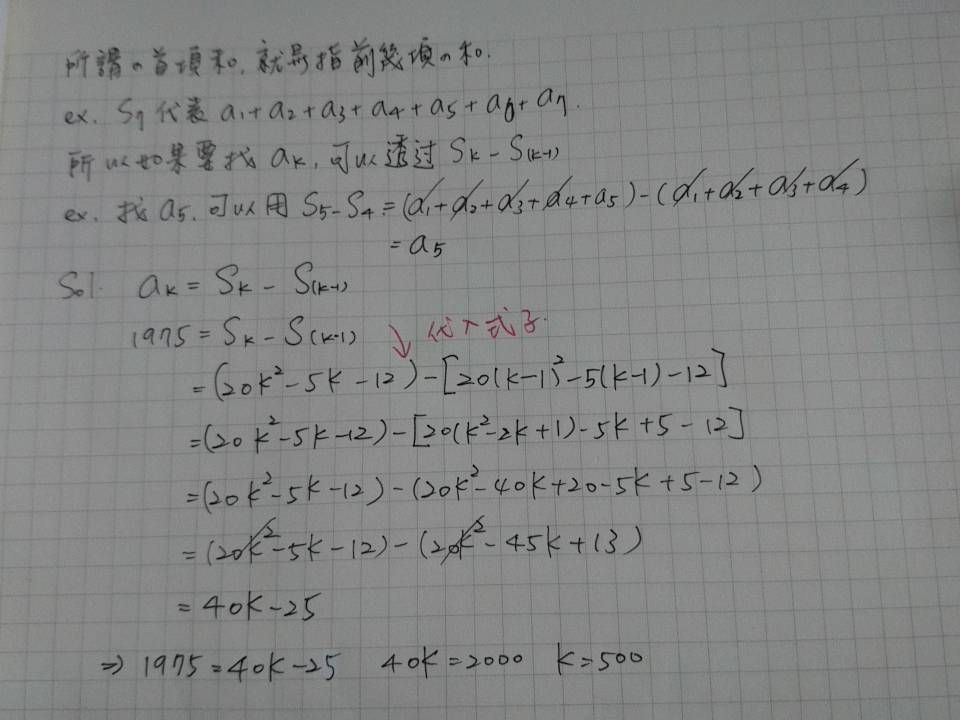 所謂の首項和,就是指前幾項の和.
ex. S7代表 a1+a2+a3+a4+a5+a6+a7.
所以如果要找 aK,可以透过 SK-S(K-1)
ex. 找a5,可以用 S5-S4=(a1+a2+a3+a4+a5)-(a1+a2+a3+a4)
=a5
Sol. aK=SK-S(K-1)
1975=SK-S(K-1) ↓代入式子.
=(20K²-5K-12)-[20(K-1)²-5(K-1)-12]
=(20K²-5K-12)-[20(K²-2K+1)-5K+5-12]
=(20K²-5K-12)-(20K²-40K+20-5K+5-12)
=(20K²-5K-12)-(20K²-45K+13)
=40K-25
⇒1975=40K-25 40K=2000 K=500